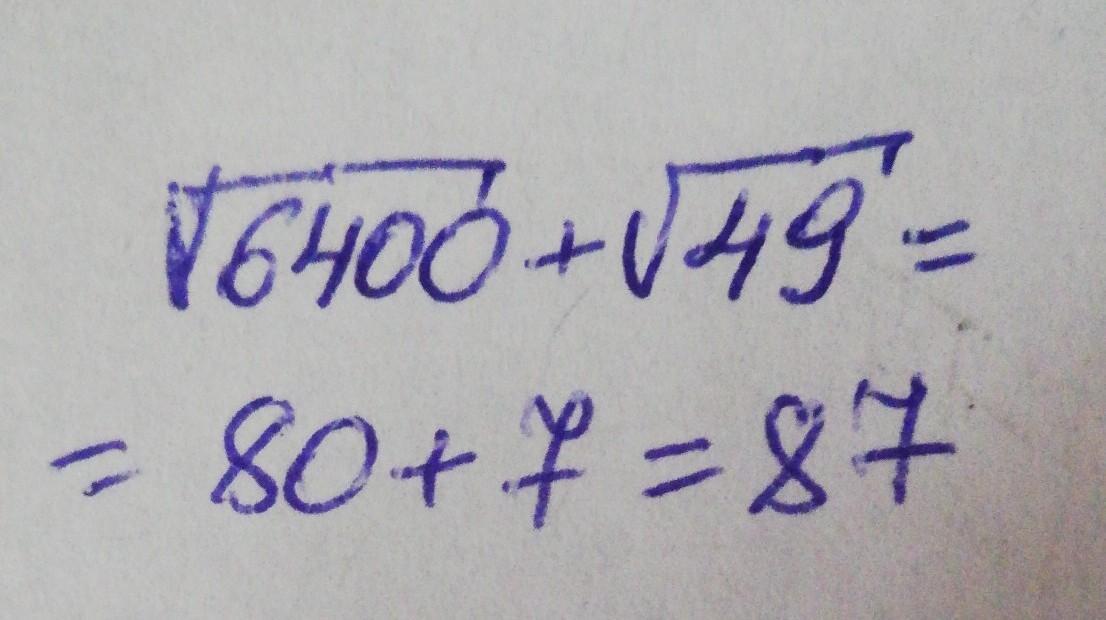 √6400 + √49 =
= 80 + 7 = 87